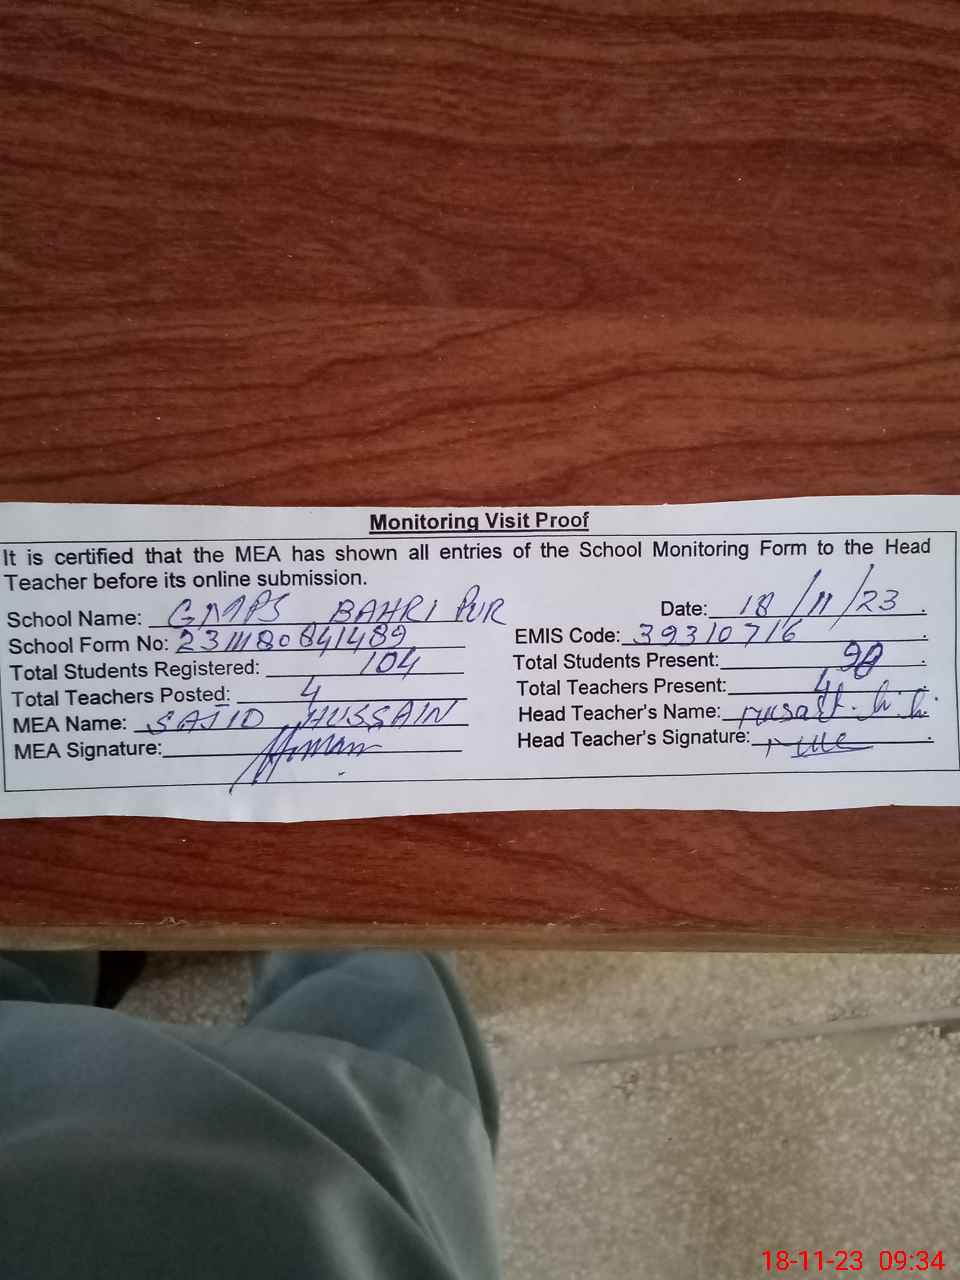 Monitoring Visit Proof
It is certified that the MEA has shown all entries of the School Monitoring Form to the Head
Teacher before its online submission.
School Name: GMPS BAHRI PUR Date: 18/11/23
School Form No: 2311180841489 EMIS Code: 39310716
Total Students Registered: 104 Total Students Present: 90
Total Teachers Posted: 4 Total Teachers Present: 4
MEA Name: SAJID HUSSAIN Head Teacher's Name:
MEA Signature: Head Teacher's Signature:
18-11-23 09:34